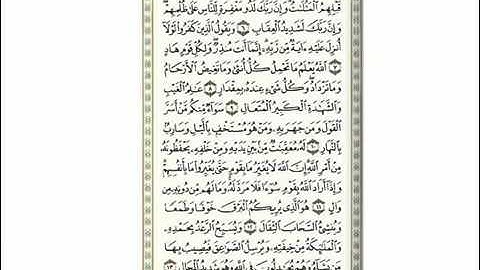 قَبْلِهِمُ ٱلْمَثُلَٰتُ وَإِنَّ رَبَّكَ لَذُو مَغْفِرَةٍ لِّلنَّاسِ عَلَىٰ ظُلْمِهِمْ
وَإِنَّ رَبَّكَ لَشَدِيدُ ٱلْعِقَابِ ٦ وَيَقُولُ ٱلَّذِينَ كَفَرُوا۟ لَوْلَآ
أُنزِلَ عَلَيْهِ ءَايَةٌ مِّن رَّبِّهِۦٓ إِنَّمَآ أَنتَ مُنذِرٌ وَلِكُلِّ قَوْمٍ هَادٍ
٧ ٱللَّهُ يَعْلَمُ مَا تَحْمِلُ كُلُّ أُنثَىٰ وَمَا تَغِيضُ ٱلْأَرْحَامُ
وَمَا تَزْدَادُ وَكُلُّ شَىْءٍ عِندَهُۥ بِمِقْدَارٍ ٨ عَٰلِمُ ٱلْغَيْبِ
وَٱلشَّهَٰدَةِ ٱلْكَبِيرُ ٱلْمُتَعَالِ ٩ سَوَآءٌ مِّنكُم مَّنْ أَسَرَّ
ٱلْقَوْلَ وَمَن جَهَرَ بِهِۦ وَمَنْ هُوَ مُسْتَخْفٍۭ بِٱلَّيْلِ وَسَارِبٌۢ
بِٱلنَّهَارِ ١٠ لَهُۥ مُعَقِّبَٰتٌ مِّنۢ بَيْنِ يَدَيْهِ وَمِنْ خَلْفِهِۦ يَحْفَظُونَهُۥ
مِنْ أَمْرِ ٱللَّهِ إِنَّ ٱللَّهَ لَا يُغَيِّرُ مَا بِقَوْمٍ حَتَّىٰ يُغَيِّرُوا۟ مَا بِأَنفُسِهِمْ
وَإِذَآ أَرَادَ ٱللَّهُ بِقَوْمٍ سُوٓءًا فَلَا مَرَدَّ لَهُۥ وَمَا لَهُم مِّن دُونِهِۦ مِن
وَالٍ ١١ هُوَ ٱلَّذِى يُرِيكُمُ ٱلْبَرْقَ خَوْفًا وَطَمَعًا
وَيُنشِئُ ٱلسَّحَابَ ٱلثِّقَالَ ١٢ وَيُسَبِّحُ ٱلرَّعْدُ بِحَمْدِهِۦ
وَٱلْمَلَٰٓئِكَةُ مِنْ خِيفَتِهِۦ وَيُرْسِلُ ٱلصَّوَٰعِقَ فَيُصِيبُ بِهَا
مَن يَشَآءُ وَهُمْ يُجَٰدِلُونَ فِى ٱللَّهِ وَهُوَ شَدِيدُ ٱلْمِحَالِ ١٣